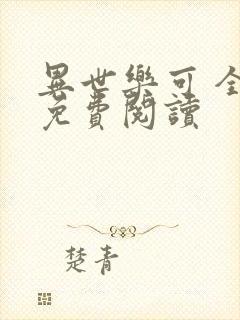 異世樂可 全
免費閱讀
楚青